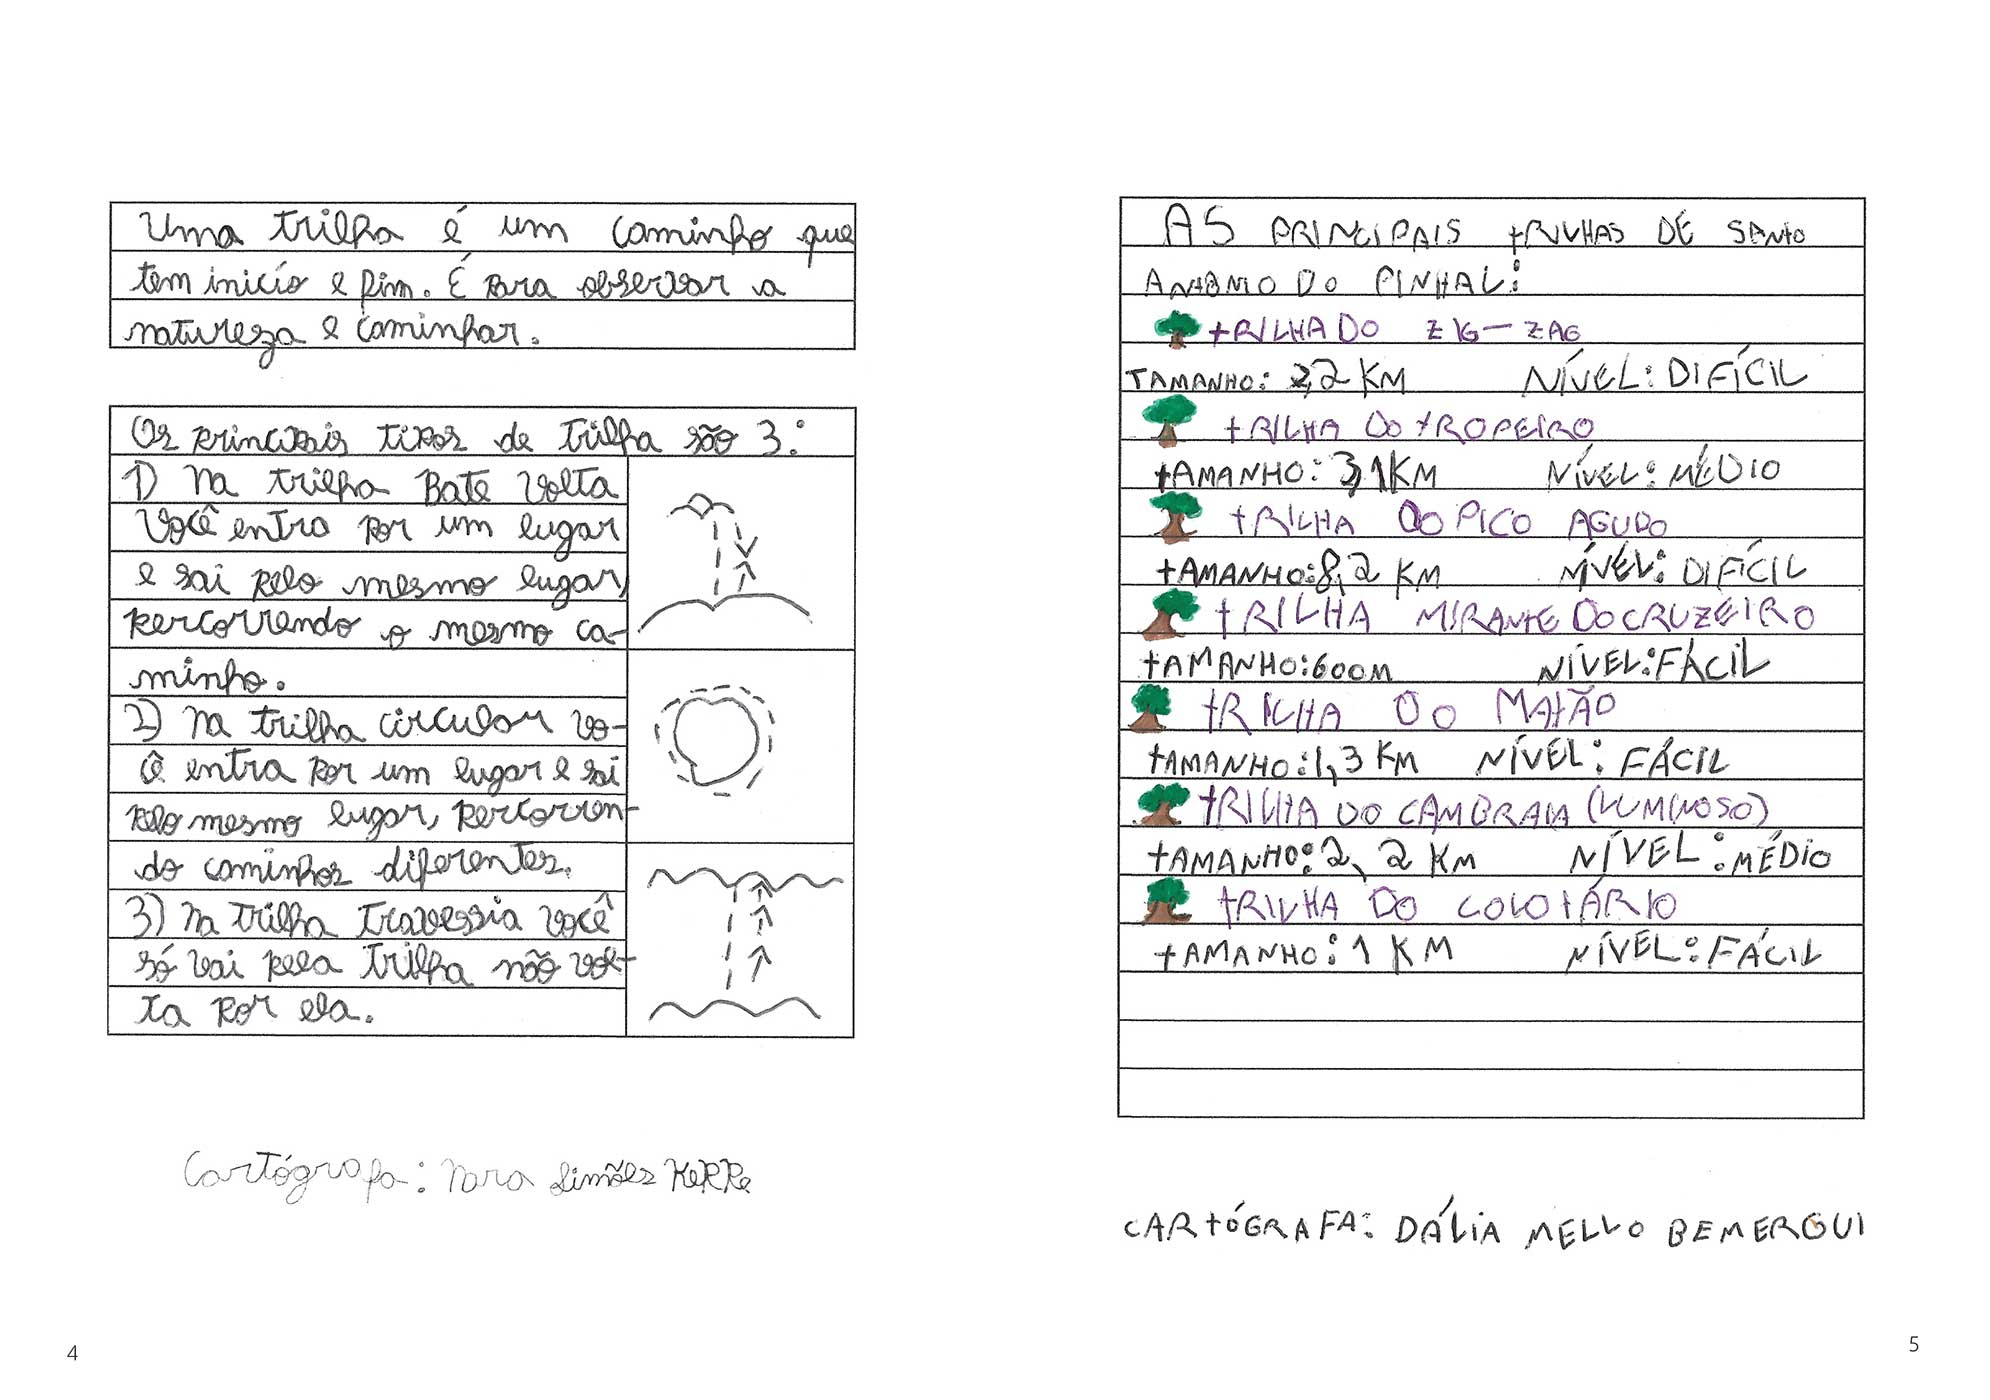 Uma trilha é um caminho que
tem inicío e fim. É para observar a
natureza e caminhar.
Os principais tipos de trilha são 3:
1) Na trilha Bate Volta
Você entra por um lugar
e sai pelo mesmo lugar,
percorrendo o mesmo ca-
minho.
2) Na trilha circular vo-
ê entra por um lugar e sai
pelo mesmo lugar, percorren-
do caminhos diferentes.
3) Na trilha travessia você
só vai pela trilha não vol-
ta por ela.
Cartógrafa: Simões
4
AS PRINCIPAIS tRILHAS DE SANtO
ANtÔNIO DO PINHAL:
tRILHA DO ZIG-ZAG
TAMANHO: 2,2 KM NÍVEL: DIFÍCIL
tRILHA DO tROPEIRO
tAMANHO: 3,1 KM NÍVEL: MÉDIO
tRILHA DO PICO AGUDO
tAMANHO: 8,2 KM NÍVEL: DIFÍCIL
tRILHA MIRANtE DO CRUZEIRO
tAMANHO: 600M NÍVEL: FÁCIL
tRILHA DO MAtÃO
tAMANHO: 1,3 KM NÍVEL: FÁCIL
tRILHA DO CAMBRAIA (LUMINOSO)
tAMANHO: 2,2 KM NÍVEL: MÉDIO
tRILHA DO COLOtÁRIO
tAMANHO: 1 KM NÍVEL: FÁCIL
CARtÓGRAFA: DÁLIA MELLO BEMERGUI
5